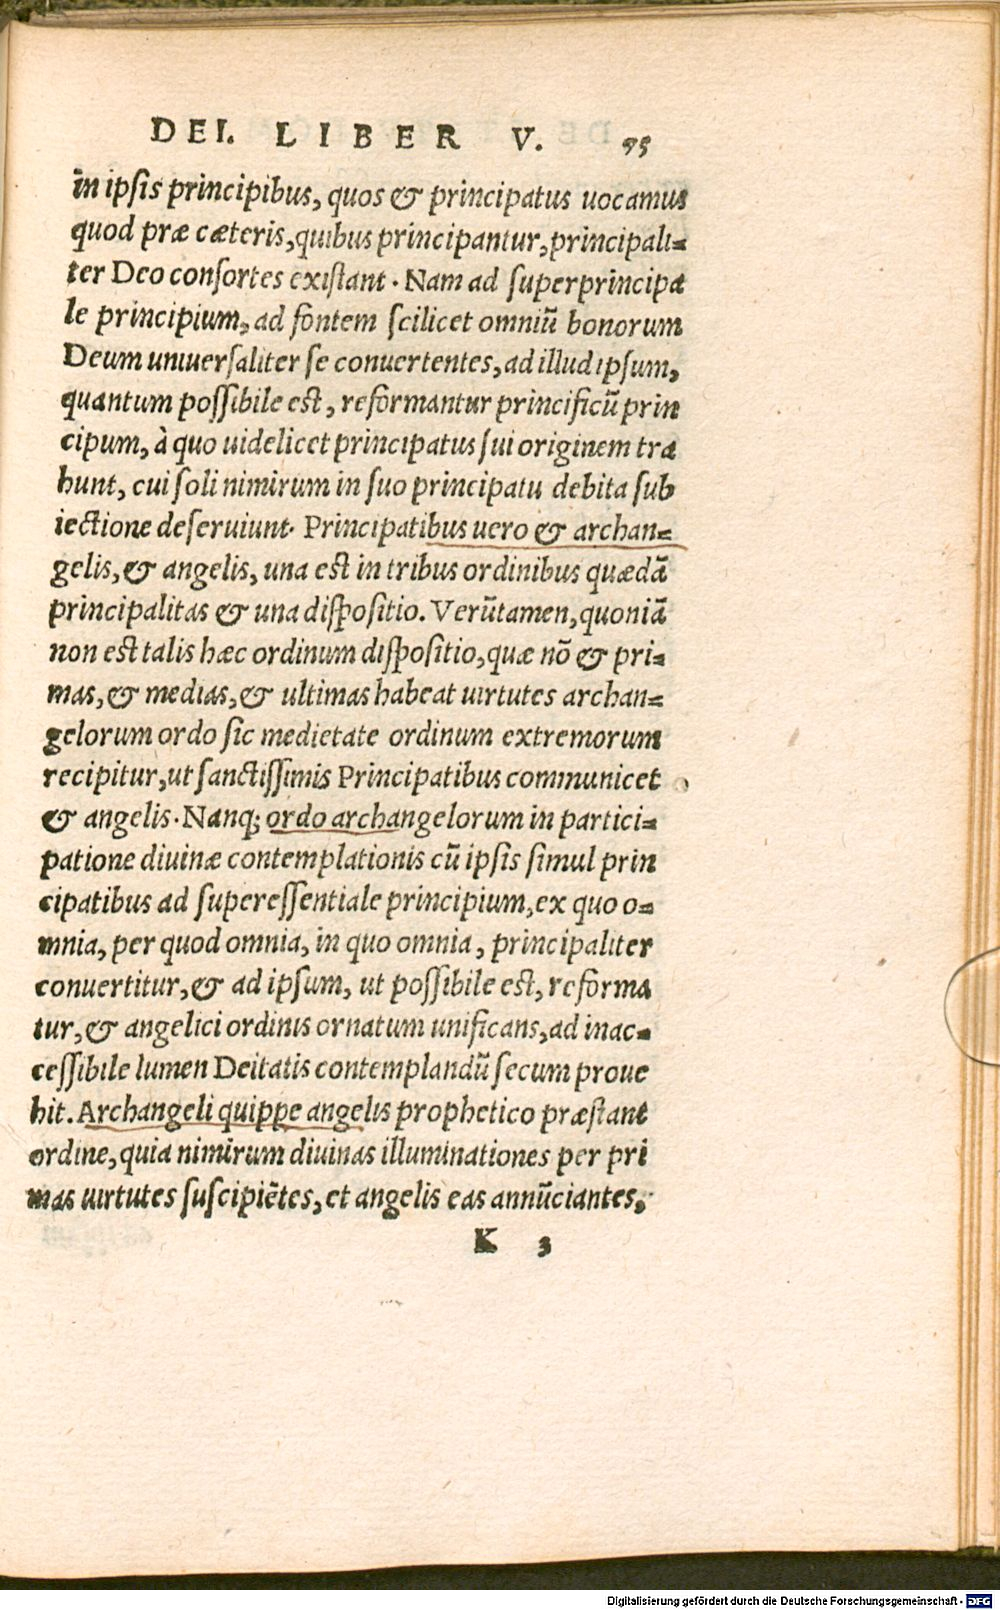 DEI. LIBER V. 75
in ipsis principibus, quos & principatus uocamus
quod præ cæteris, quibus principantur, principali-
ter Deo consortes existant. Nam ad superprincipa
le principium, ad fontem scilicet omniũ bonorum
Deum uniuersaliter se conuertentes, ad illud ipsum,
quantum possibile est, reformantur principificũ prin
cipum, à quo uidelicet principatus sui originem tra
hunt, cui soli nimirum in suo principatu debita sub
iectione deseruiunt. Principatibus uero & archan-
gelis, & angelis, una est in tribus ordinibus quædã
principalitas & una dispositio. Verũtamen, quoniã
non est talis hæc ordinum dispositio, quæ nõ & pri-
mas, & medias, & ultimas habeat uirtutes archan-
gelorum ordo sic medietate ordinum extremorum
recipitur, ut sanctissimis Principatibus communicet
& angelis. Nanq; ordo archangelorum in partici-
patione diuinæ contemplationis cũ ipsis simul prin
cipatibus ad superessentiale principium, ex quo o-
mnia, per quod omnia, in quo omnia, principaliter
conuertitur, & ad ipsum, ut possibile est, reforma
tur, & angelici ordinis ornatum unificans, ad inac-
cessibile lumen Deitatis contemplandũ secum proue
hit. Archangeli quippe angelis prophetico præstant
ordine, quia nimirum diuinas illuminationes per pri
mas uirtutes suscipiẽtes, et angelis eas annũciantes,
K 3
Digitalisierung gefördert durch die Deutsche Forschungsgemeinschaft - DFG